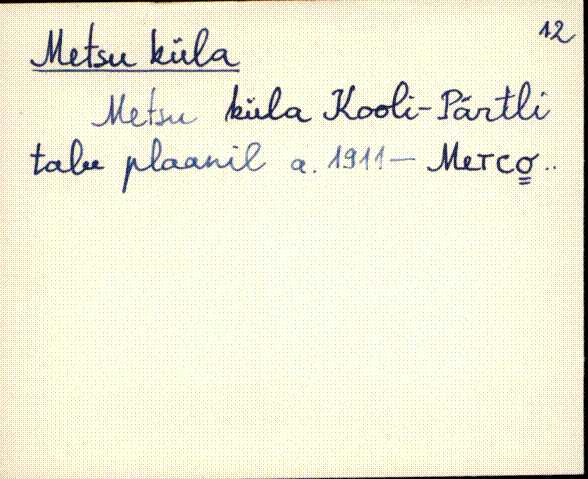 12
Metsu küla
Metsu küla Kooli-Pärtli
talu plaanil a. 1911 — Merco..